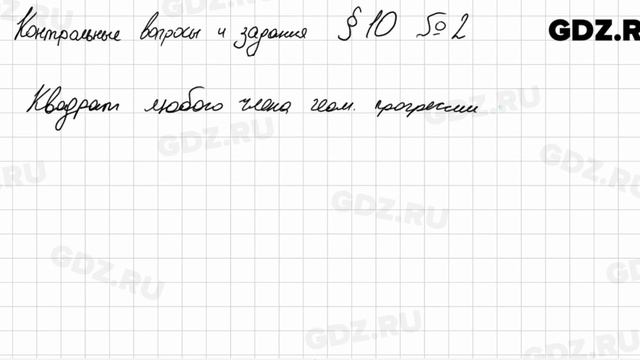 Контрольные вопросы и задания § 10 № 2
GDZ.R
Квадрат любого члена геом. прогрессии
GDZ.RU
GDZ.RU
GDZ.RU
GDZ.RU